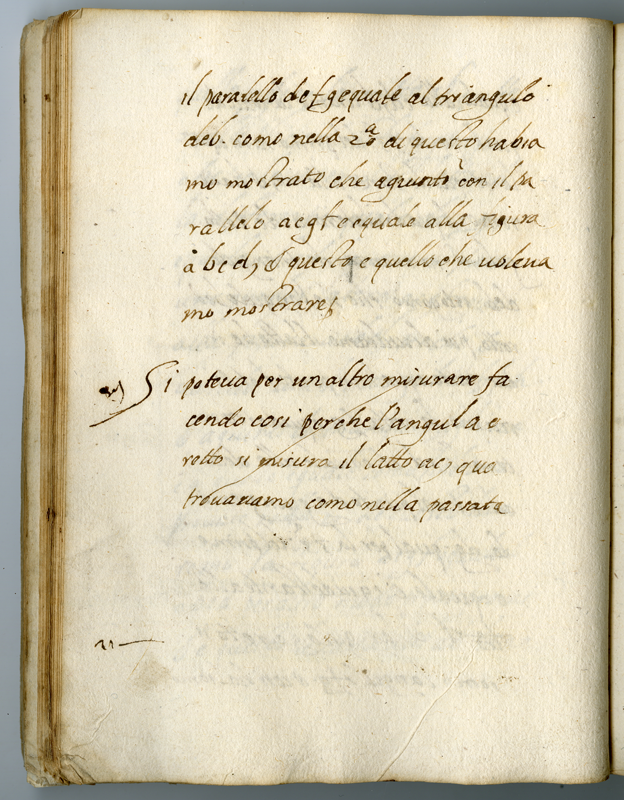 il paralello defg equale al triangulo
deb. como nella 2a di questo habia
mo mostrato che agiunto con il pa
rallelo aegf e equale alla figura
abcd, & questo e quello che voleva
mo mostrare
Si poteva per un altro misurare fa
cendo cosi perche l'angul a e
retto si misura il latto ac, qua
trovariamo como nella passata